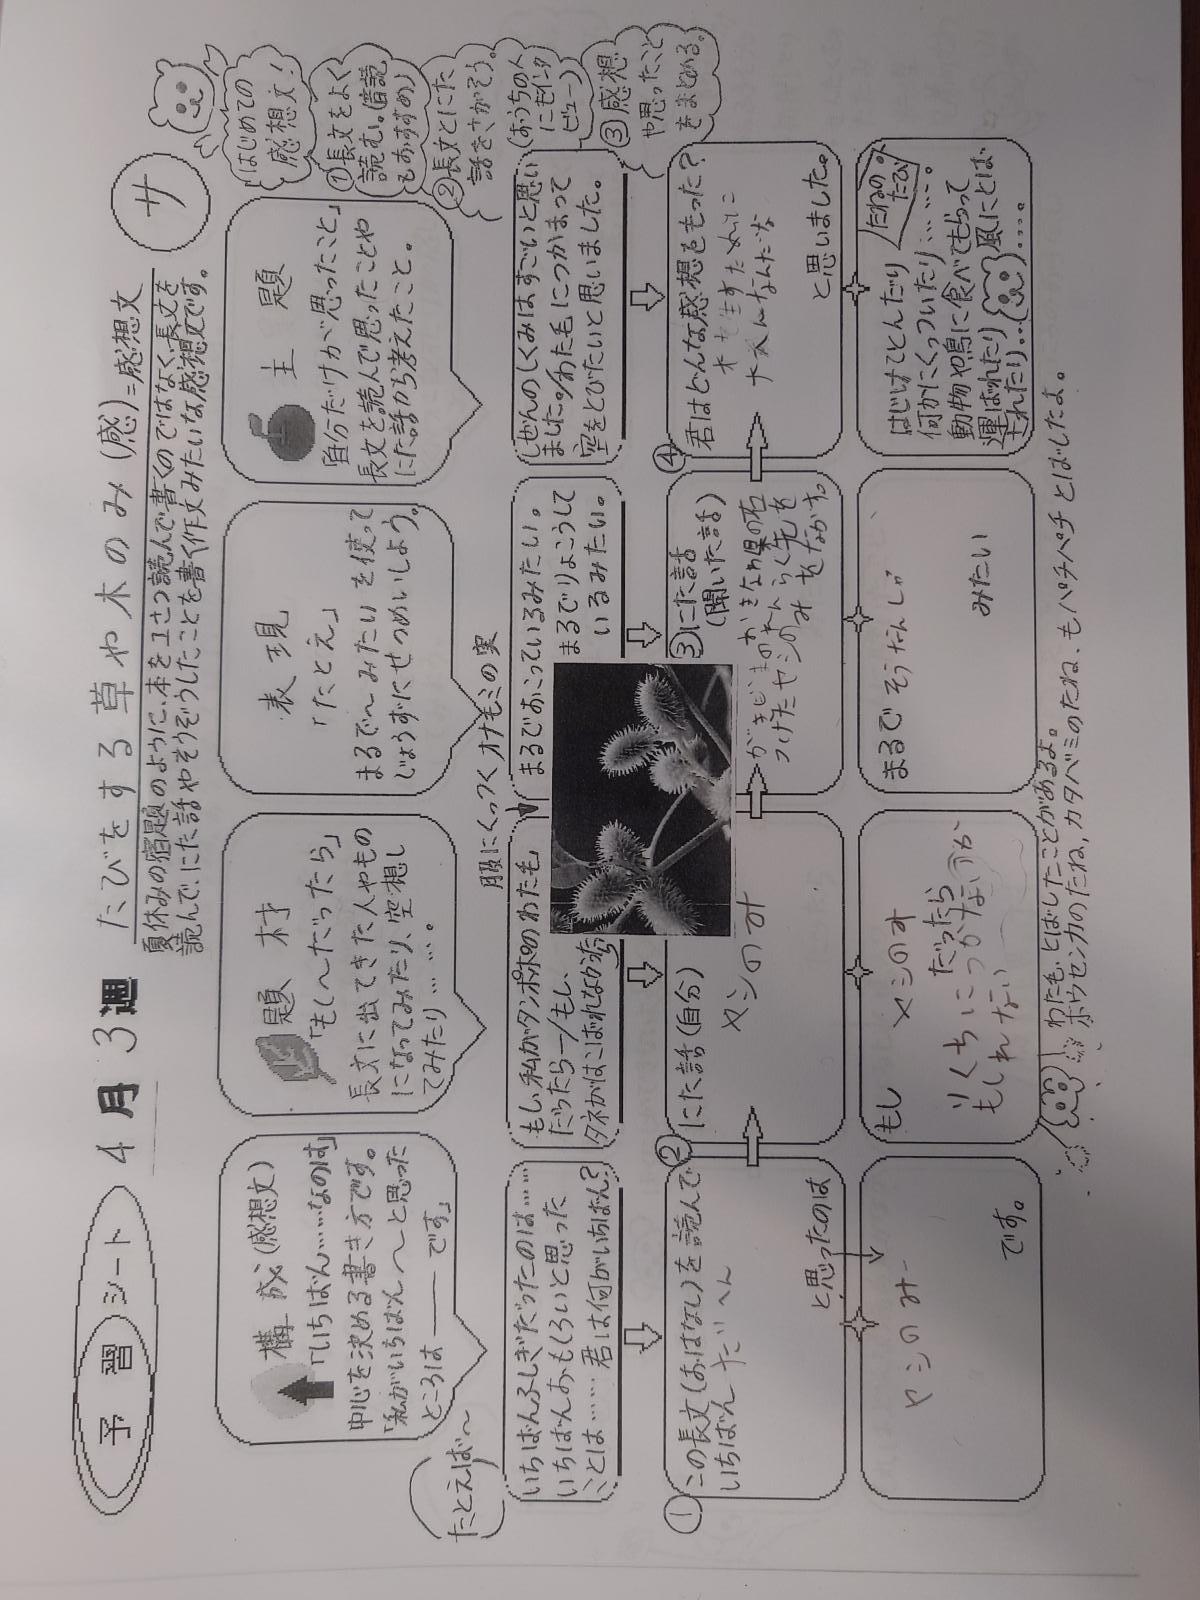 予習シート
4月3週
たびをする草や木のみ(感)=感想文
サ
夏休みの宿題のように、本を1さつ読んで書くのではなく、長文を
読んで、にた話やそうぞうしたことを書く作文みたいな感想文です。
はじめての
感想文!
①長文をよく
読む。(音読
もおすすめ)
②長文とにた
話をさがそう。
(おうちの人
にもインタ
ビュー)
③感想
や思ったこと
をまとめる。
構成(感想文)
「いちばん……なのは」
中心を決める書き方です。
「私がいちばん〜と思った
ところは――です」
題材
「もし〜だったら」
長文に出てきた人やもの
になってみたり、空想し
てみたり……。
表現
「たとえ」
まるで〜みたい を使って
じょうずにせつめいしよう。
主題
「自分だけが思ったこと」
長文を読んで思ったことや
にた話から考えたこと。
たとえば〜
服にくっつくオナモミの実
いちばんふしぎだったのは……
いちばんおもしろいと思った
ことは…… 君は何がいちばん?
もし、私がタンポポのわた毛
だったら―/もし、
タネがはこばれなかったら
まるでおこっているみたい。
まるでりょこうして
いるみたい。
しぜんのしくみはすごいと思い
ました。/わた毛につかまって
空をとびたいと思いました。
①この長文(おはなし)を読んで
いちばん たいへん
と思ったのは
②にた話(自分)
ヤシのみ
③にた話
(聞いた話)
ヤシのみ
をながす。
④君はどんな感想をもった?
たいへんなんだな
と思いました。
ヤシのみ
です。
もし ヤシのみ
だったら
りくちにつかないか
もしれない
まるで
みたい
たねの
たび
はじけてとんだり
何かにくっついたり……。
動物や鳥に食べてもらって
運ばれたり 風にとば
されたり……。
わたも、とばしたことがあるよ。
ホウセンカのたね、カタバミのたね、もパチパチとばしたよ。